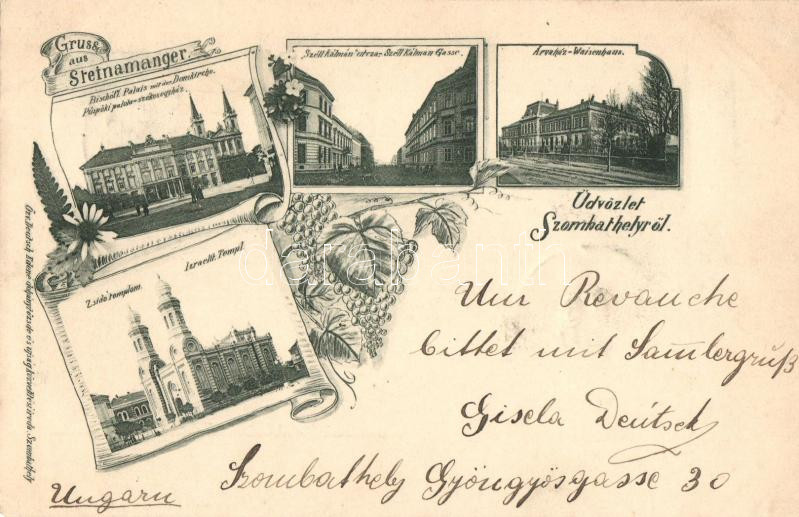 Gruss
aus
Steinamanger.
Bischöfl. Palais mit der Domkirche.
Püspöki palota-székesegyház.
„Széll Kálmán" utcza-Széll Kálmán Gasse.
Árvaház-Waisenhaus.
Üdvözlet
Szombathelyről.
Zsidó templom.
Israelit. Templ.
Szombathely
darabanth
Um Revanche
bittet mit Samlergruß
Gisela Deutsch
Szombathely Gyöngyösgasse 30
Ungarn